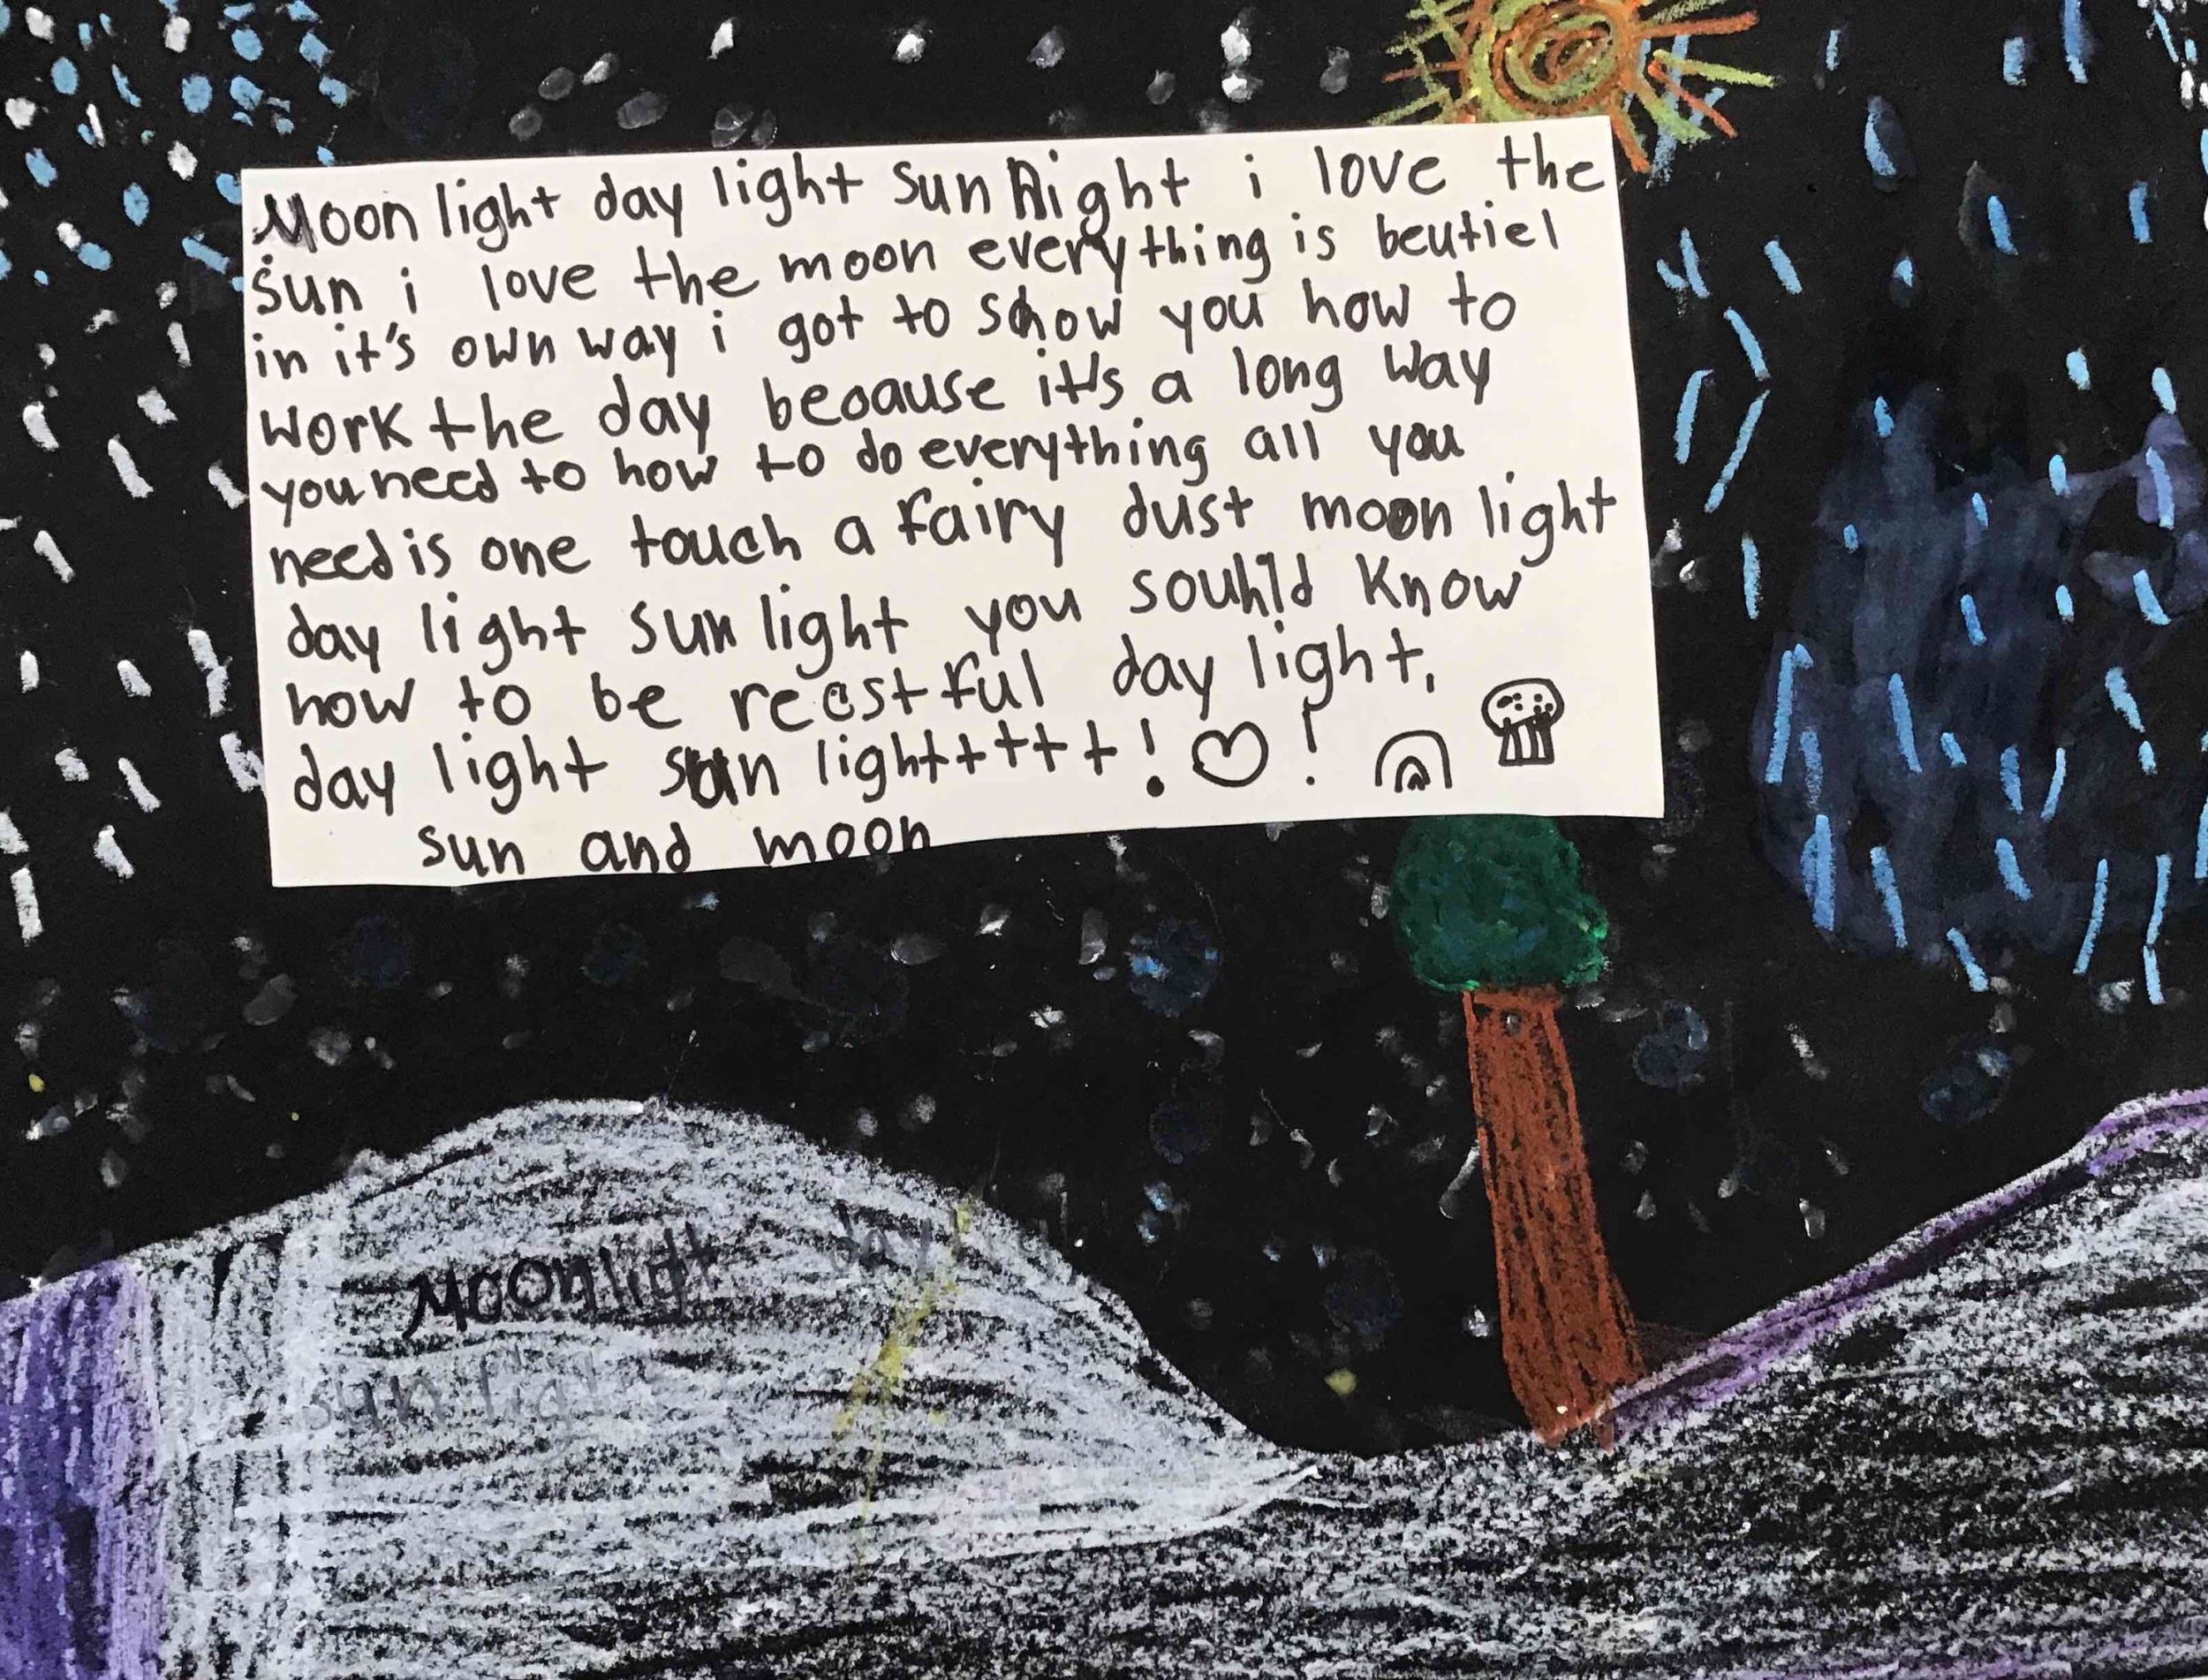 Moon light day light sun light i love the
sun i love the moon everything is beutiel
in it's own way i got to show you how to
work the day because it's a long way
you need to how to do everything all you
need is one touch a fairy dust moon light
day light sun light you souhld know
how to be reestful day light,
day light sun lightttttt! !
sun and moon
Moonlight day
sun light